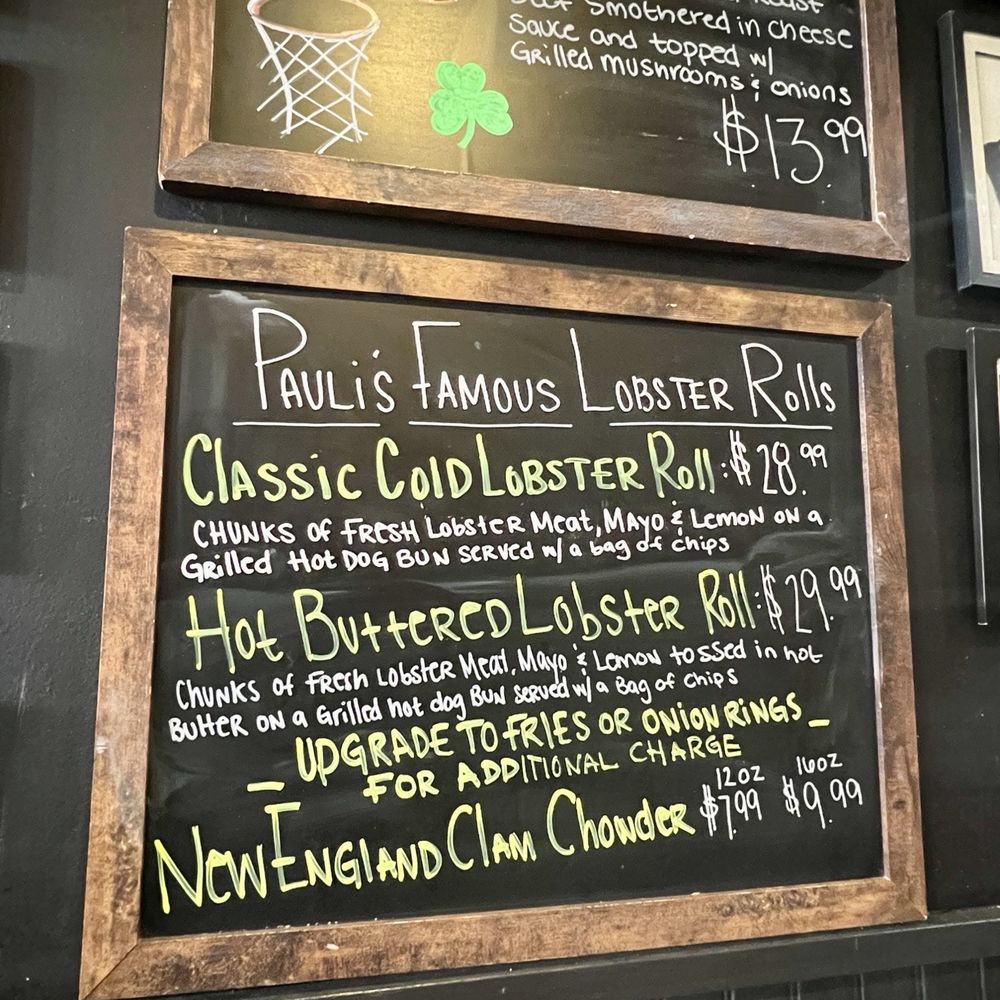 Smothered in cheese
sauce and topped w/
Grilled mushrooms & onions
$13.99
PAULI'S FAMOUS LOBSTER Rolls
Classic Cold LOBSTER Roll: $28.99
CHUNKS of FRESH LobSteR Meat, MAYO & LeMON ON a
Grilled Hot DOG BUN SERVED w/ a bag of chips
Hot ButteRED Lobster Roll: $29.99
CHUNKS of FResh Lobster Meat, Mayo & Lemon tossed in hot
ButteR ON a Grilled hot dog BuN served w/ a Bag of chips
_ UPGRADE TO FRIES OR ONION RINGS _
FOR ADDITIONAL CHARGE
12oz 16oz
New ENGLAND Clam Chowder $7.99 $9.99